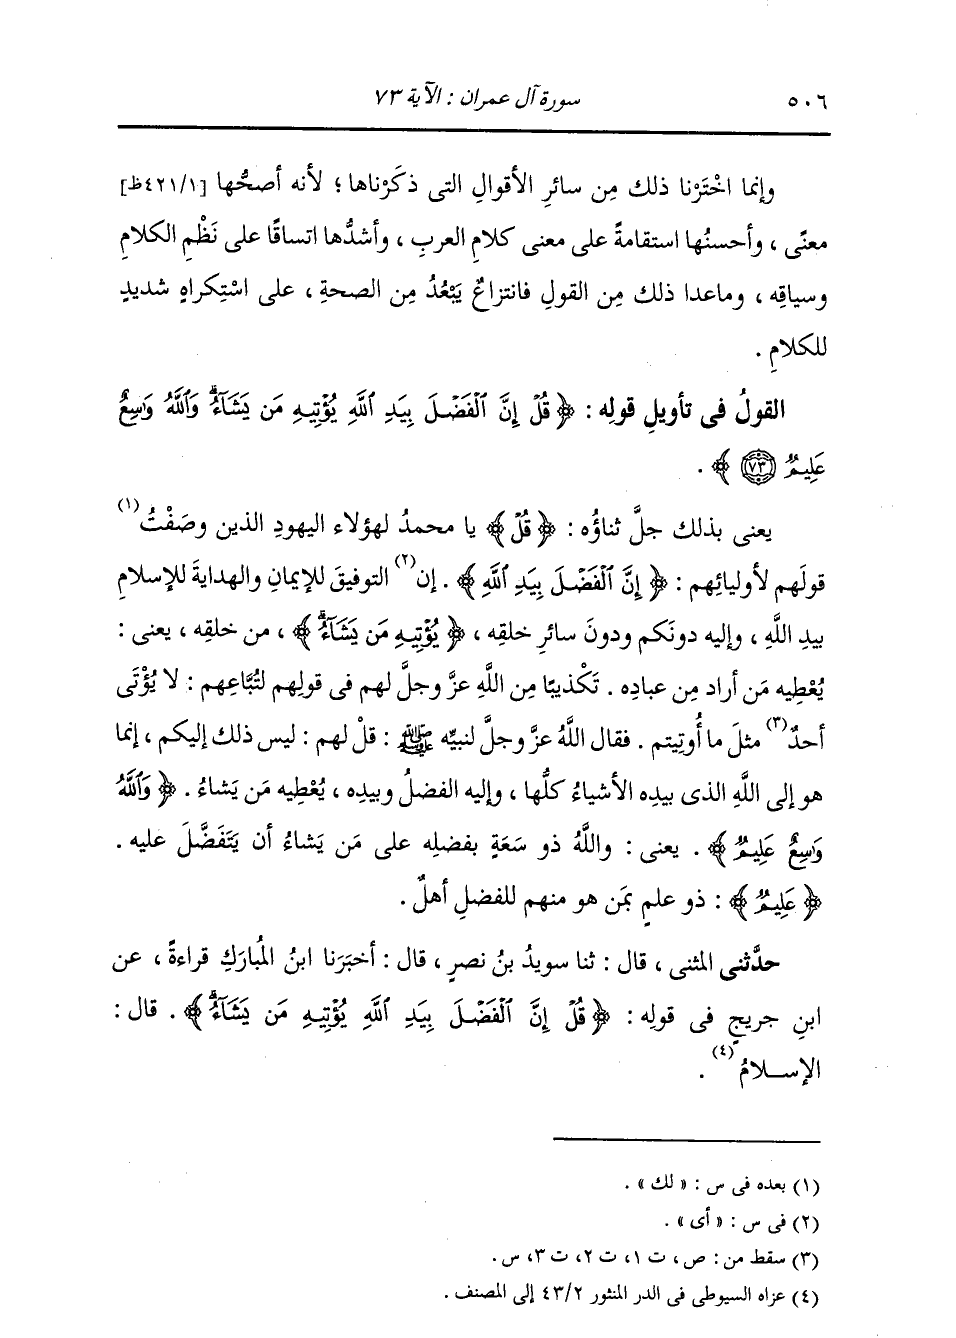 ٥٠٦ سورة آل عمران : الآية ٧٣
وإنما اخْتَرْنا ذلك مِن سائرِ الأقوالِ التى ذكَرْناها ؛ لأنه أصحُّها [٤٢١/١ظ]
معنًى ، وأحسنُها استقامةً على معنى كلامِ العربِ ، وأشدُّها اتساقًا على نَظْمِ الكلامِ
وسياقِه ، وماعدا ذلك مِن القولِ فانتزاعٌ يَبْعُدُ مِن الصحةِ ، على اسْتِكراهٍ شديدٍ
للكلامِ .
القولُ فى تأويلِ قولِه : ﴿ قُلْ إِنَّ ٱلْفَضْلَ بِيَدِ ٱللَّهِ يُؤْتِيهِ مَن يَشَآءُ ۗ وَٱللَّهُ وَٰسِعٌ
عَلِيمٌ ٧٣ ﴾ .
يعنى بذلك جلَّ ثناؤُه : ﴿ قُلْ ﴾ يا محمدُ لهؤلاء اليهودِ الذين وصَفْتُ (١)
قولَهم لأوليائِهم : ﴿ إِنَّ ٱلْفَضْلَ بِيَدِ ٱللَّهِ ﴾ . إن (٢) التوفيقَ للإيمانِ والهدايةَ للإسلامِ
بيدِ اللَّهِ ، وإليه دونَكم ودونَ سائرِ خلقِه ، ﴿ يُؤْتِيهِ مَن يَشَآءُ ۗ ﴾ ، من خلقِه ، يعنى :
يُعْطِيه مَن أراد مِن عبادِه . تَكْذيبًا مِن اللَّهِ عزَّ وجلَّ لهم فى قولِهم لتُبَّاعِهم : لا يُؤْتَى
أحدٌ (٣) مثلَ ما أُوتِيتم . فقال اللَّهُ عزَّ وجلَّ لنبيِّه ﷺ : قلْ لهم : ليس ذلك إليكم ، إنما
هو إلى اللَّهِ الذى بيدِه الأشياءُ كلُّها ، وإليه الفضلُ وبيدِه ، يُعْطِيه مَن يَشاءُ . ﴿ وَٱللَّهُ
وَٰسِعٌ عَلِيمٌ ﴾ . يعنى : واللَّهُ ذو سَعَةٍ بفضلِه على مَن يَشاءُ أن يَتَفَضَّلَ عليه .
﴿ عَلِيمٌ ﴾ : ذو علمٍ بمَن هو منهم للفضلِ أهلٌ .
حدَّثنى المثنى ، قال : ثنا سويدُ بنُ نصرٍ ، قال : أخبَرَنا ابنُ المُبارَكِ قراءةً ، عن
ابنِ جريجٍ فى قولِه : ﴿ قُلْ إِنَّ ٱلْفَضْلَ بِيَدِ ٱللَّهِ يُؤْتِيهِ مَن يَشَآءُ ۗ ﴾ . قال :
الإسـلامُ (٤) .
(١) بعده فى س : « لك » .
(٢) فى س : « أى » .
(٣) سقط من : ص ، ت ١، ت ٢، ت ٣، س .
(٤) عزاه السيوطى فى الدر المنثور ٤٣/٢ إلى المصنف .